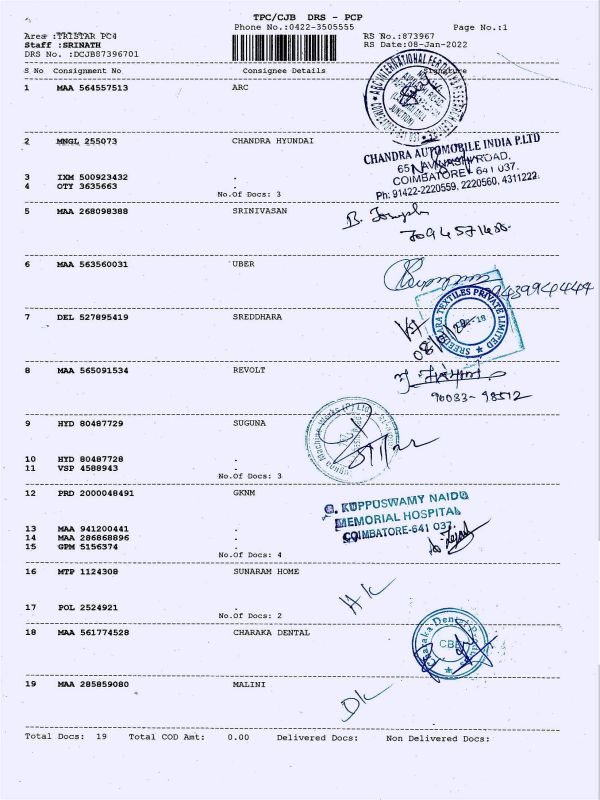 TPC/CJB DRS - PCP
Phone No.:0422-3505555 Page No.:1
Area :TRISTAR PC4 RS No.:873967
Staff :SRINATH RS Date:08-Jan-2022
DRS No. :DCJB87396701
S No Consignment No Consignee Details Signature
1 MAA 564557513 ARC
2 MNGL 255073 CHANDRA HYUNDAI
CHANDRA AUTOMOBILE INDIA P.LTD
65, AVINASHI ROAD,
COIMBATORE - 641 037.
Ph: 91422-2220559, 2220560, 4311222.
3 IXM 500923432 .
4 OTY 3635663 .
No.Of Docs: 3
5 MAA 268098388 SRINIVASAN
B. Joseph
6 MAA 563560031 UBER
9439944444
7 DEL 527895419 SREDDHARA
SREEDHARA TEXTILES PRIVATE LIMITED
8 MAA 565091534 REVOLT
90033-98512
9 HYD 80487729 SUGUNA
10 HYD 80487728 .
11 VSP 4588943 .
No.Of Docs: 3
12 PRD 2000048491 GKNM
G. KUPPUSWAMY NAIDU
MEMORIAL HOSPITAL
COIMBATORE-641 037.
13 MAA 941200441 .
14 MAA 286868896 .
15 GPM 5156374 .
No.Of Docs: 4
16 MTP 1124308 SUNARAM HOME
17 POL 2524921 .
No.Of Docs: 2
18 MAA 561774528 CHARAKA DENTAL
Charaka Dental Products
CBE
19 MAA 285859080 MALINI
Total Docs: 19 Total COD Amt: 0.00 Delivered Docs: Non Delivered Docs: